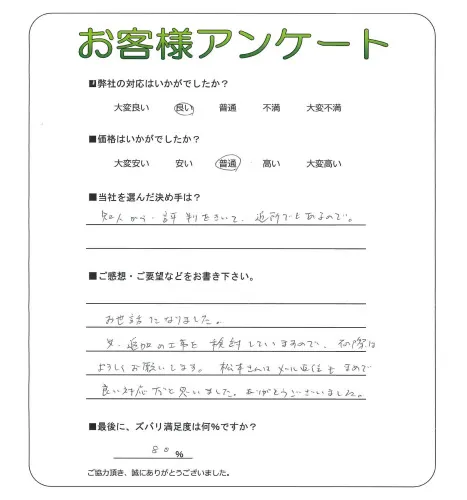 お客様アンケート
■弊社の対応はいかがでしたか？
大変良い 良い 普通 不満 大変不満
■価格はいかがでしたか？
大変安い 安い 普通 高い 大変高い
■当社を選んだ決め手は？
知人から、評判をきいて、近所でもあるので。
■ご感想・ご要望などをお書き下さい。
お世話になりました。
又、追加の工事を検討していますので、その際は
よろしくお願いします。松本さんはメール返信もまめで
良い対応だと思いました。ありがとうございました。
■最後に、ズバリ満足度は何%ですか？
80 %
ご協力頂き、誠にありがとうございました。